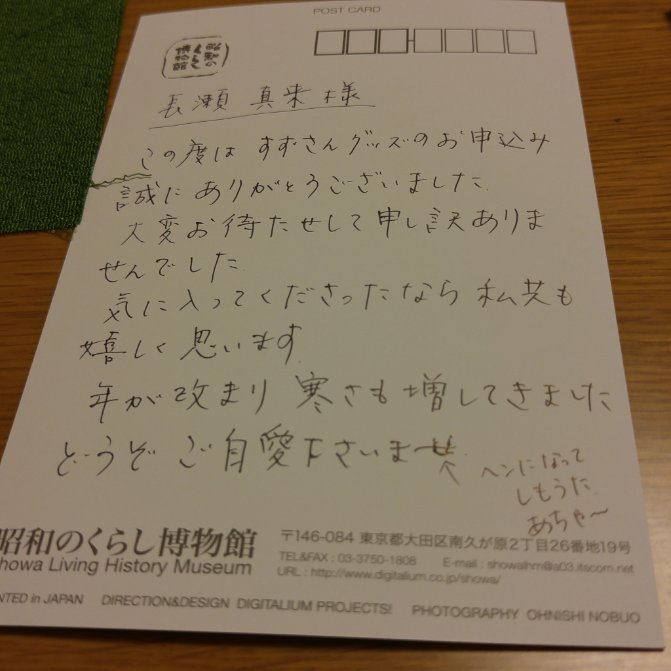 POST CARD
昭和の
くらし
博物館
長瀬 真来様
この度は すずさんグッズのお申込み
誠にありがとうございました
大変お待たせして申し訳ありま
せんでした
気に入ってくださったなら 私共も
嬉しく思います
年が改まり 寒さも増してきました
どうぞ ご自愛下さいませ
↑
ヘンになって
しもうた
あちゃ〜
昭和のくらし博物館
Showa Living History Museum
〒146-084 東京都大田区南久が原2丁目26番地19号
TEL&FAX : 03-3750-1808 E-mail : showalhm@a03.itscom.net
URL : http://www.digitalium.co.jp/showa/
PRINTED in JAPAN DIRECTION&DESIGN DIGITALIUM PROJECTS! PHOTOGRAPHY OHNISHI NOBUO